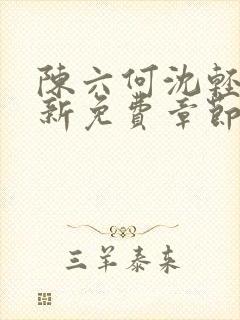 陳六何沈輕
新免費章節
三羊泰来